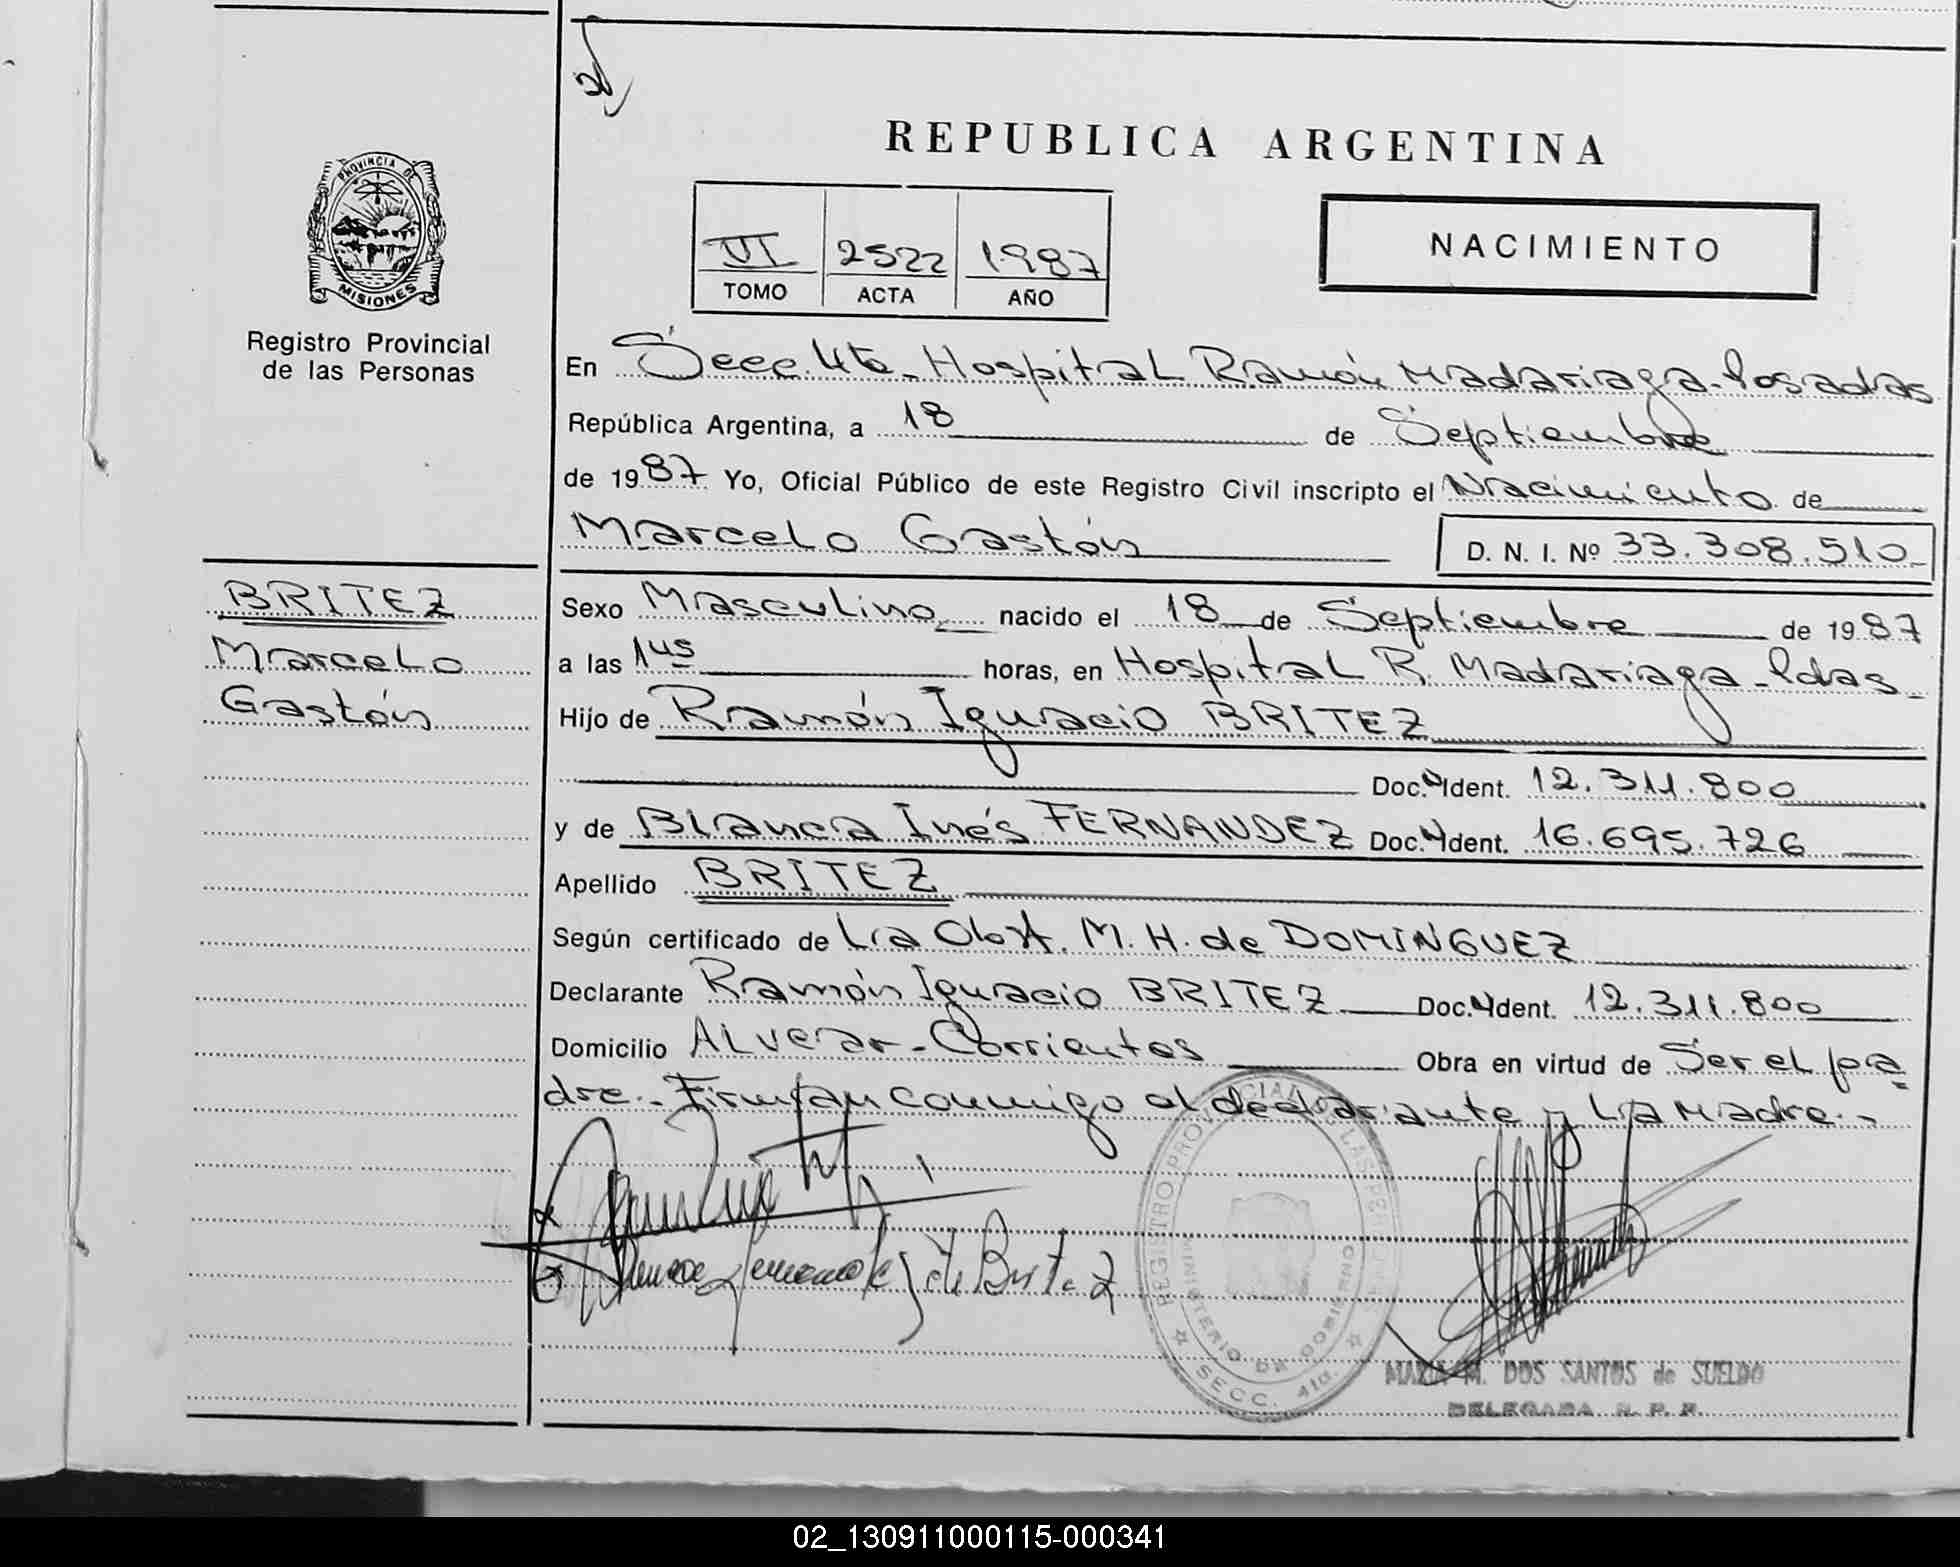 REPUBLICA ARGENTINA
PROVINCIA DE
MISIONES
Registro Provincial
de las Personas
VI 2522 1987
TOMO ACTA AÑO
NACIMIENTO
En Secc. 4ta- Hospital Ramón Madariaga- Posadas
República Argentina, a 18 de Septiembre
de 1987 Yo, Oficial Público de este Registro Civil inscripto el Nacimiento de
Marcelo Gastón D. N. I. Nº 33.308.510-
BRITEZ
Marcelo
Gastón
Sexo Masculino nacido el 18 de Septiembre de 1987
a las 1:45 horas, en Hospital R. Madariaga- Pdas-
Hijo de Ramón Ignacio BRITEZ
Doc. Ident. 12.311.800
y de Blanca Inés FERNANDEZ Doc. Ident. 16.695.726
Apellido BRITEZ
Según certificado de La Obst. M. H. de DOMINGUEZ
Declarante Ramón Ignacio BRITEZ Doc. Ident. 12.311.800
Domicilio Alvear- Corrientes Obra en virtud de Ser el pa-
dre.- Firman conmigo el declarante y La Madre.-
REGISTRO PROVINCIAL DE LAS PERSONAS
MINISTERIO DE GOBIERNO
SECC. 4ta.
de Britez
MARIA M. DOS SANTOS de SUELDO
DELEGADA R. P. P.
02_130911000115-000341